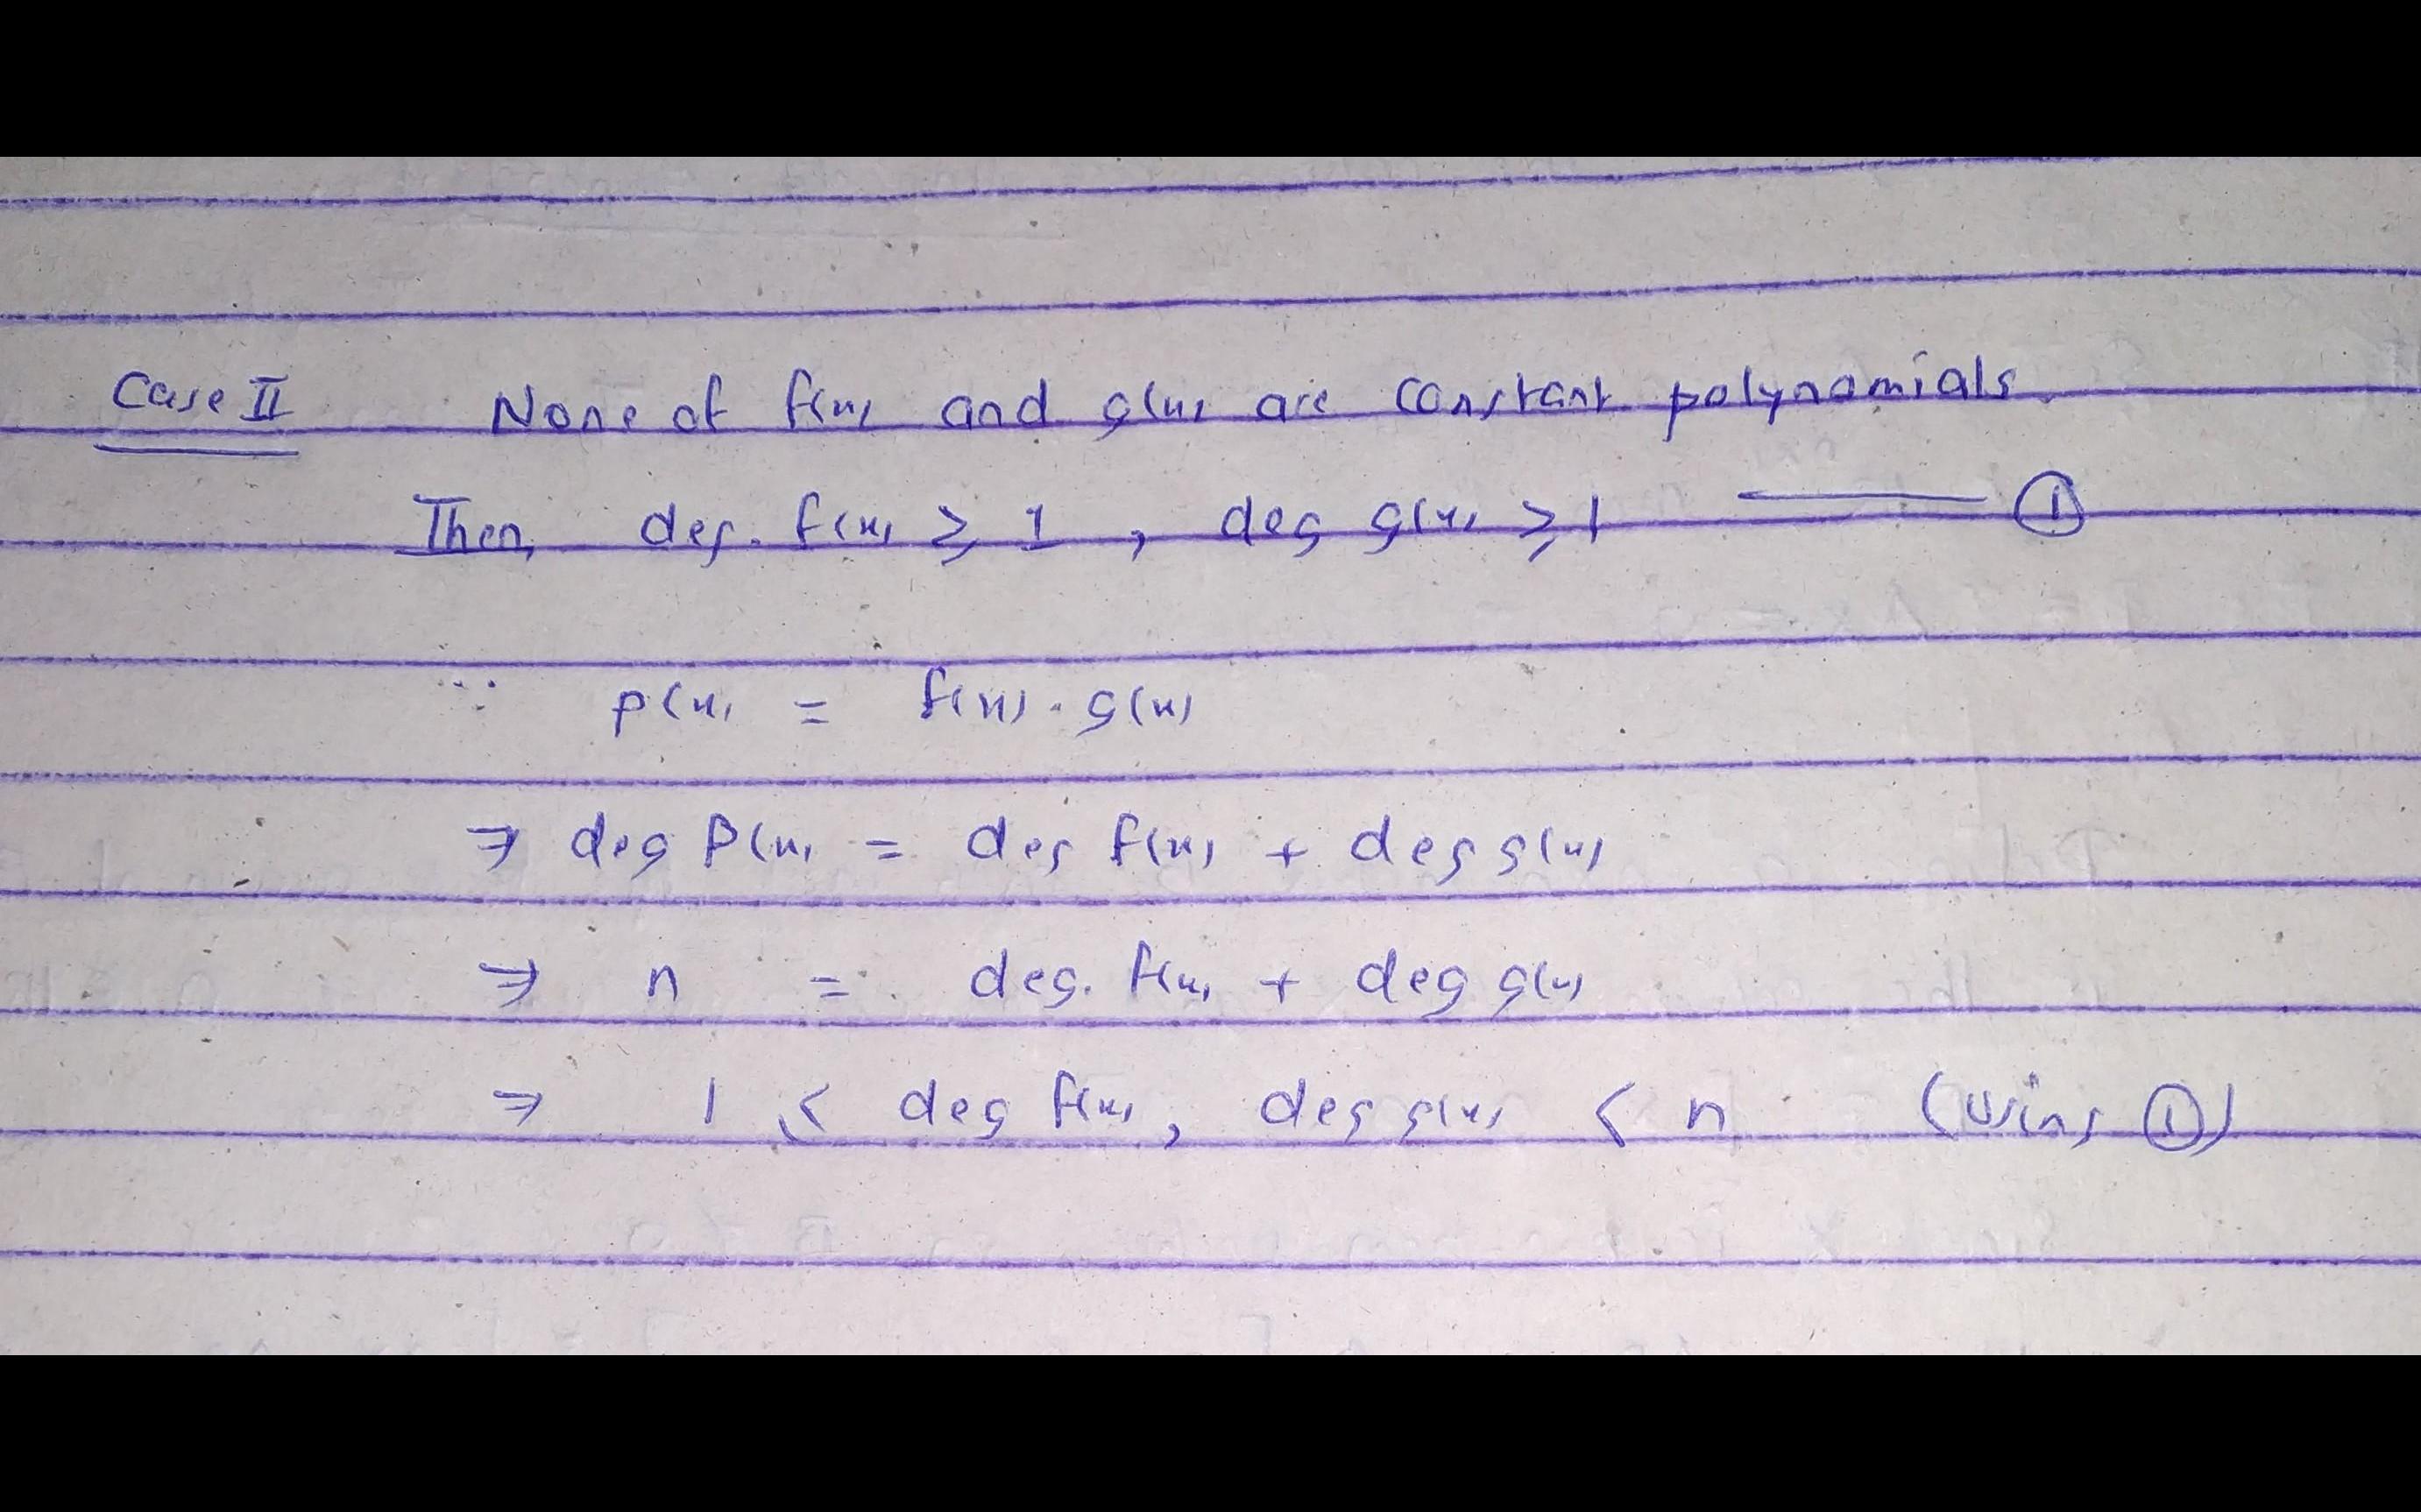 Case II None of f(x) and g(x) are constant polynomials.
Then, deg. f(x) ≥ 1 , deg g(x) ≥ 1 —— ①
∵ p(x) = f(x) . g(x)
⇒ deg P(x) = deg f(x) + deg g(x)
⇒ n = deg. f(x) + deg g(x)
⇒ 1 ≤ deg f(x), deg g(x) < n (Using ①)